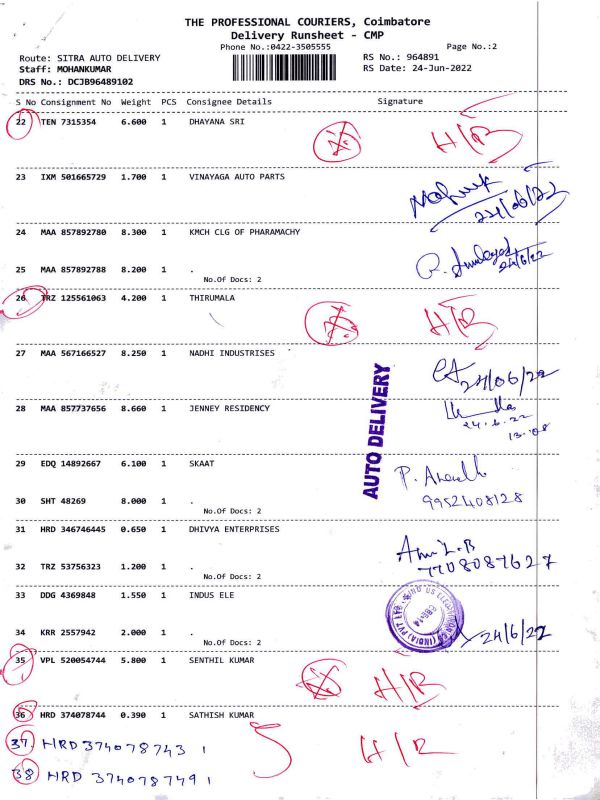 THE PROFESSIONAL COURIERS, Coimbatore
Delivery Runsheet - CMP
Phone No.:0422-3505555 Page No.:2
Route: SITRA AUTO DELIVERY RS No.: 964891
Staff: MOHANKUMAR RS Date: 24-Jun-2022
DRS No.: DCJB96489102
S No Consignment No Weight PCS Consignee Details Signature
22 TEN 7315354 6.600 1 DHAYANA SRI H/B
23 IXM 501665729 1.700 1 VINAYAGA AUTO PARTS
24/06/22
24 MAA 857892780 8.300 1 KMCH CLG OF PHARAMACHY
24/6/22
25 MAA 857892788 8.200 1 .
No.Of Docs: 2
26 TRZ 125561063 4.200 1 THIRUMALA H/B
27 MAA 567166527 8.250 1 NADHI INDUSTRISES
24/06/22
AUTO DELIVERY
28 MAA 857737656 8.660 1 JENNEY RESIDENCY
24.6.22
13.08
29 EDQ 14892667 6.100 1 SKAAT
9952408128
30 SHT 48269 8.000 1 .
No.Of Docs: 2
31 HRD 346746445 0.650 1 DHIVYA ENTERPRISES
7708087627
32 TRZ 53756323 1.200 1 .
No.Of Docs: 2
33 DDG 4369848 1.550 1 INDUS ELE
34 KRR 2557942 2.000 1 . 24/6/22
No.Of Docs: 2
35 VPL 520054744 5.800 1 SENTHIL KUMAR H/B
36 HRD 374078744 0.390 1 SATHISH KUMAR
37. HRD 374078743 1 H/R
38 HRD 374078749 1